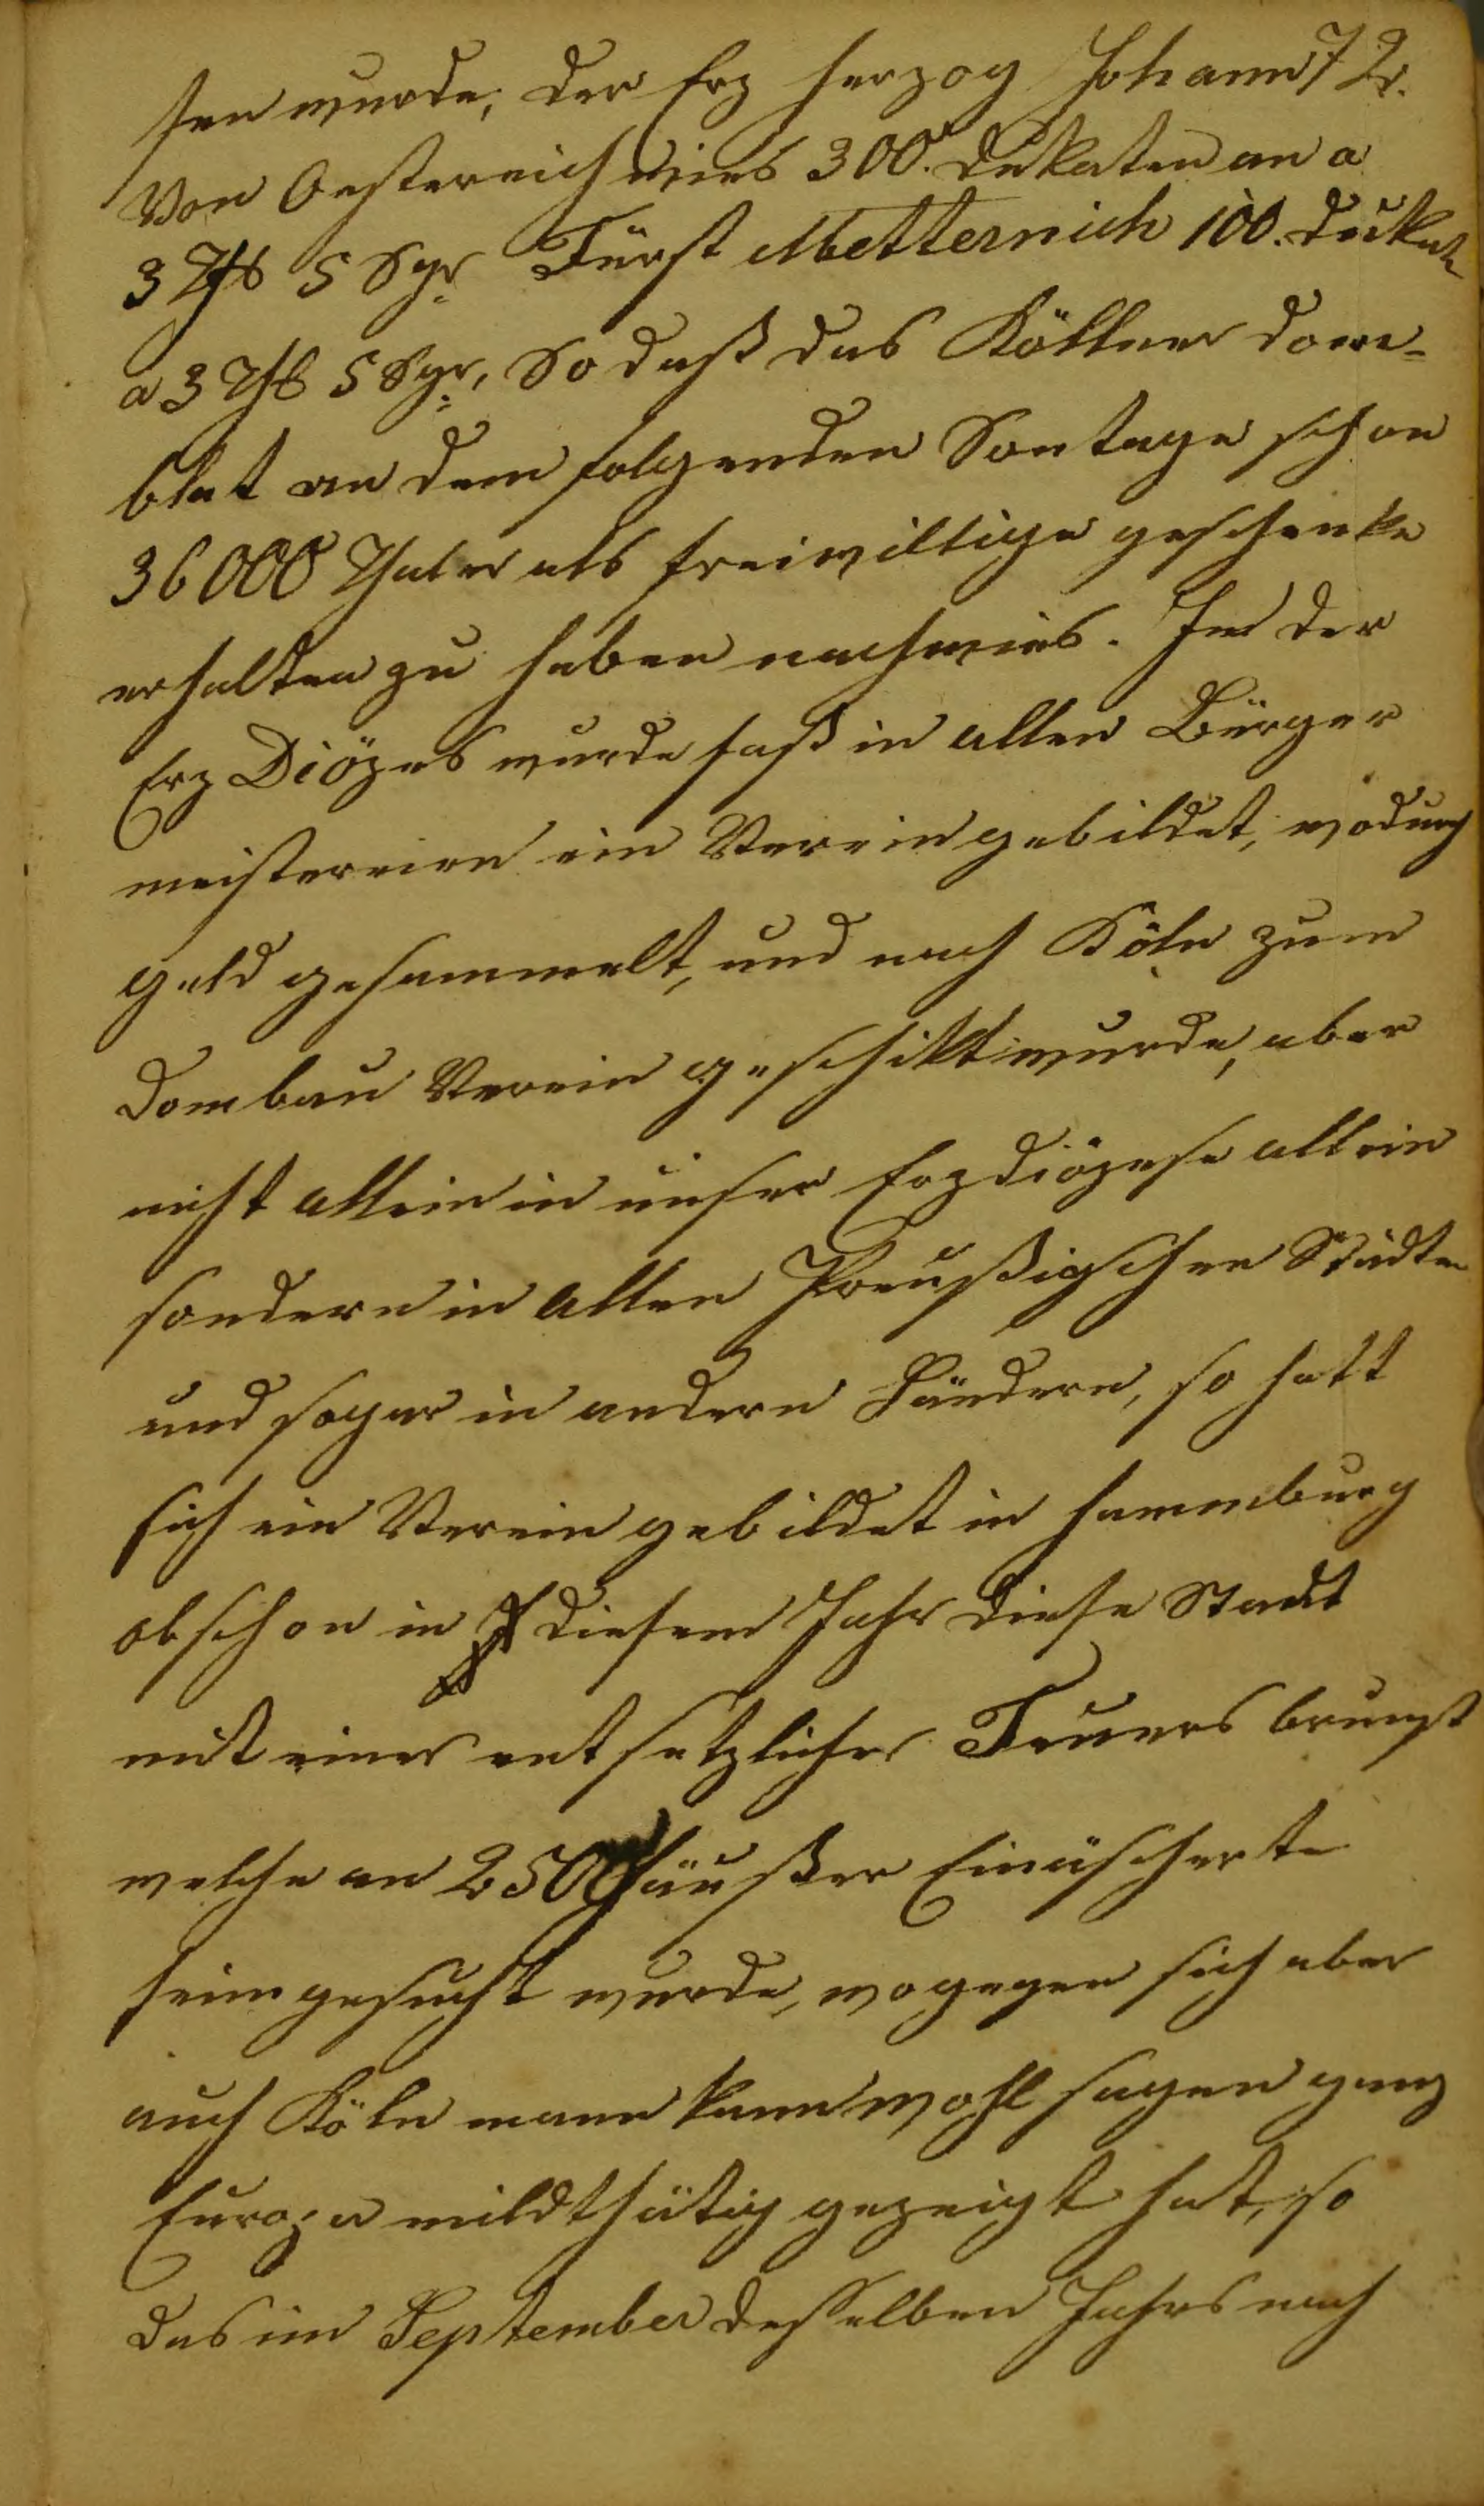 sen wurde, der Erz herzog Johann 72.
Von Oestereich wies 300. Dukaten an a
3 Thl 5 Sgr Fürst Metternich 100. Dukat
a 3 Thl 5 Sgr, So daß das Köllner Dom-
blat an dem folgenden Sontage schon
36000 Thaler als freiwillige geschenke
erhalten zu haben nachwies. In der
Erz Diözes wurde faß in allen Bürger
meistereien ein Verein gebildet, wodurch
geld gesammelt, und nach Köln zum
Dombau Verein geschikt wurde, aber
nicht allein in unser Erzdiözese allein
sondern in allen Preußischen Städten
und sogar in andern Ländern, so hatt
sich ein Verein gebildet in Hammburg
obschon in diesem Jahr diese Stadt
mit einer entsetzlicher Feuers brunst
welche an 2500 Häußer Einäscherte
heimgesucht wurde, wogegen sich aber
auch Köln mann kann wohl sagen ganz
Europa mildthätig gezeigt hat, so
das im September desselben Jahrs nach